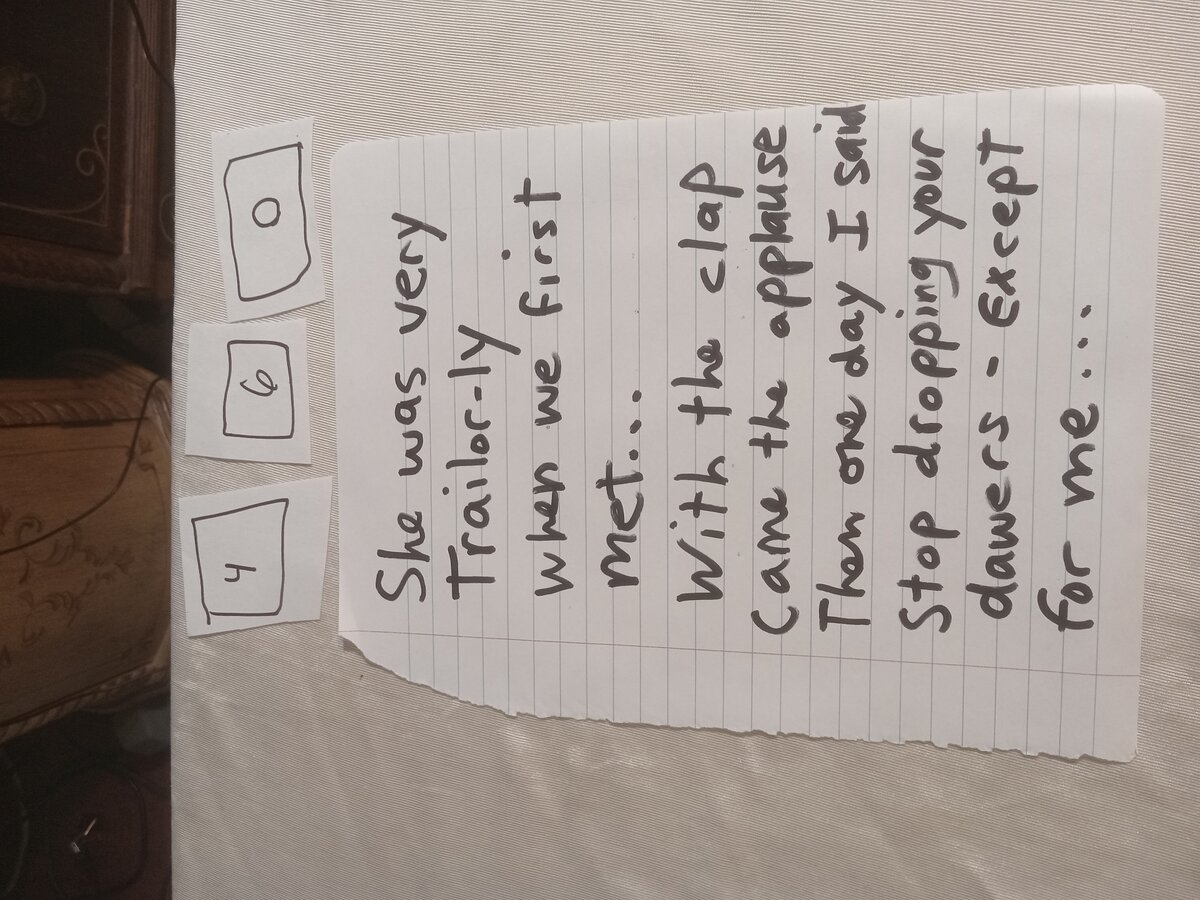 4 6 0
She was very
Trailor-ly
when we first
met...
With the clap
Came the applause
Then one day I said
Stop dropping your
dawers - Except
for me...